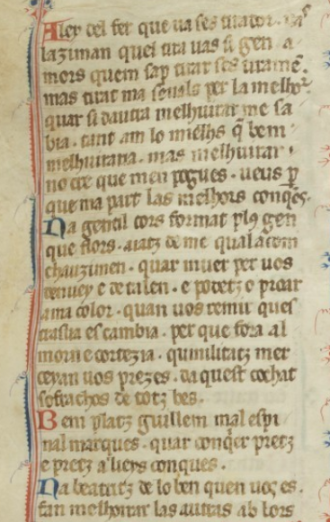 Aisex del fer que ua ses tirador. uas
laziman quel tira uas si gen. a
mors quem sap tirar ses uiraire.
mas tirat ma seuals per la melhor
quar si dautra melhuirar me sa
bia. tant am lo mielhs q̄ bem
melhuiraria. mas mielhuirar.
no cre que men pogues. ueus p̱
que ma part las melhors conqes.
Na gentil cors format pl9 gen
que flors. aiatz de me qual acom
chauzimen. quar muer per uos
denuey e de talen. e podetz o proar
a ma color. quan uos remir que s
trasua e s cambia. per que fora al
morn e cortezia. quimilitatz mer
ceyan uos prezes. daquest cochat
sofrachos de totz bes.
Bem platz guillem mal espi
nal marques. quar conqer pretz
e pretz a lieys conques.
Na beatritz de lo ben quen uos es.
fan melhorar las autras ab lors